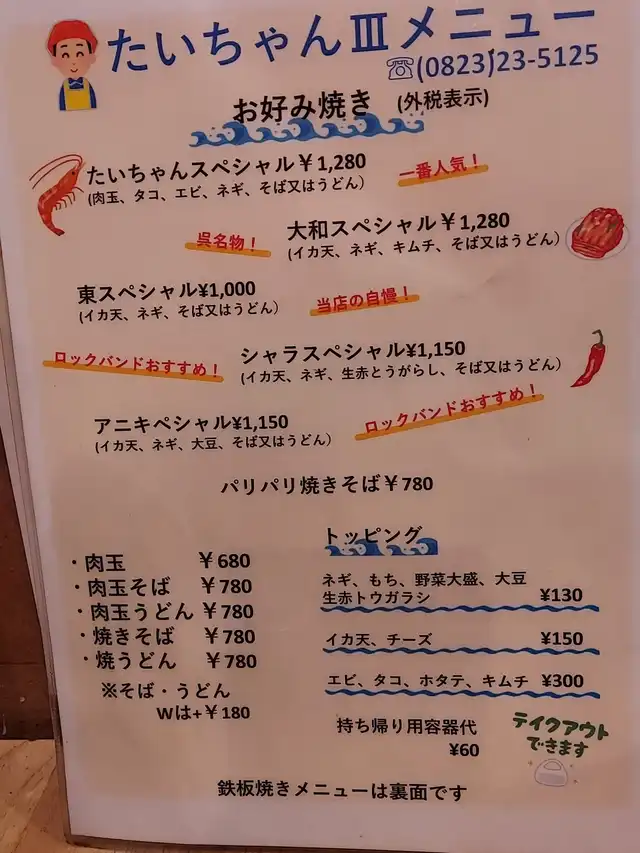 たいちゃんⅢメニュー
☏(0823)23-5125
お好み焼き (外税表示)
たいちゃんスペシャル￥1,280
(肉玉、タコ、エビ、ネギ、そば又はうどん)
一番人気！
大和スペシャル￥1,280
(イカ天、ネギ、キムチ、そば又はうどん)
呉名物！
東スペシャル¥1,000
(イカ天、ネギ、そば又はうどん)
当店の自慢！
シャラスペシャル¥1,150
(イカ天、ネギ、生赤とうがらし、そば又はうどん)
ロックバンドおすすめ！
アニキペシャル¥1,150
(イカ天、ネギ、大豆、そば又はうどん)
ロックバンドおすすめ！
パリパリ焼きそば￥780
・肉玉 ￥680
・肉玉そば ￥780
・肉玉うどん ￥780
・焼きそば ￥780
・焼うどん ￥780
※そば・うどん
Wは+￥180
トッピング
ネギ、もち、野菜大盛、大豆
生赤トウガラシ ¥130
イカ天、チーズ ¥150
エビ、タコ、ホタテ、キムチ ¥300
持ち帰り用容器代
¥60
テイクアウト
できます
鉄板焼きメニューは裏面です